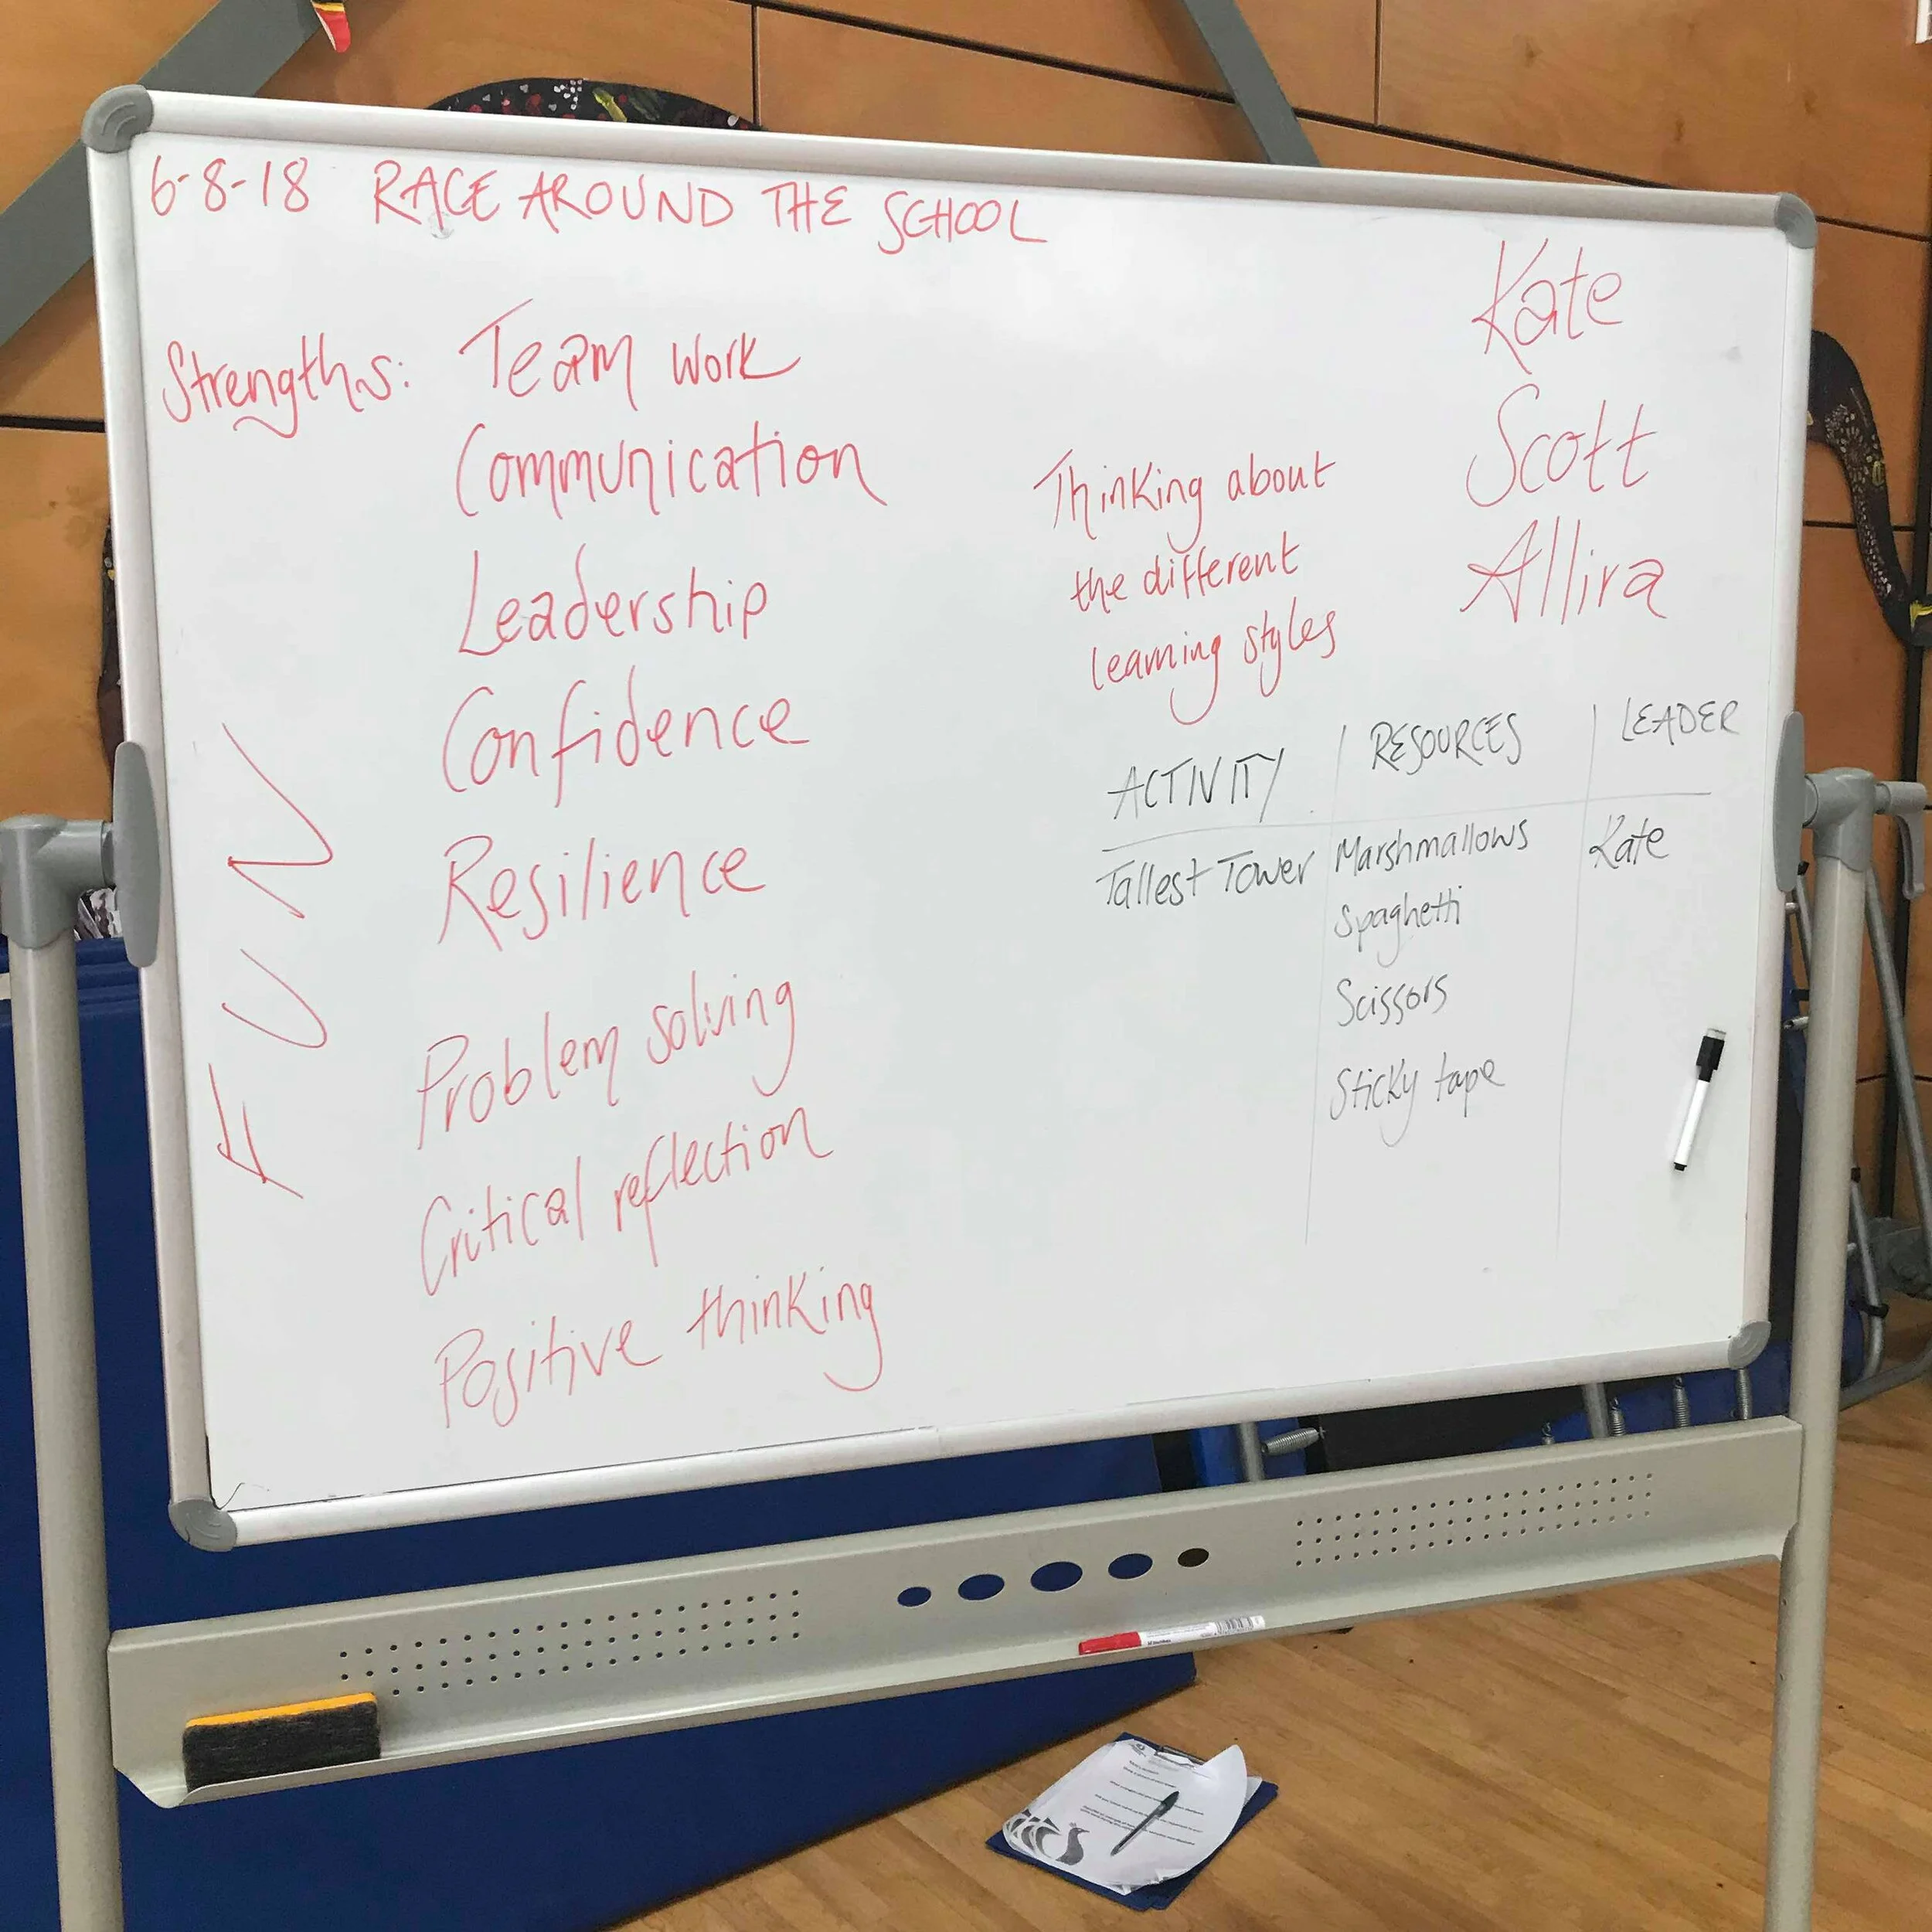 6-8-18 RACE AROUND THE SCHOOL
Strengths: Team work
Communication
Leadership
Confidence
Resilience
Problem solving
Critical reflection
Positive thinking
FUN
Kate
Scott
Allira
Thinking about
the different
learning styles
ACTIVITY RESOURCES LEADER
Tallest Tower Marshmallows Kate
Spaghetti
Scissors
Sticky tape